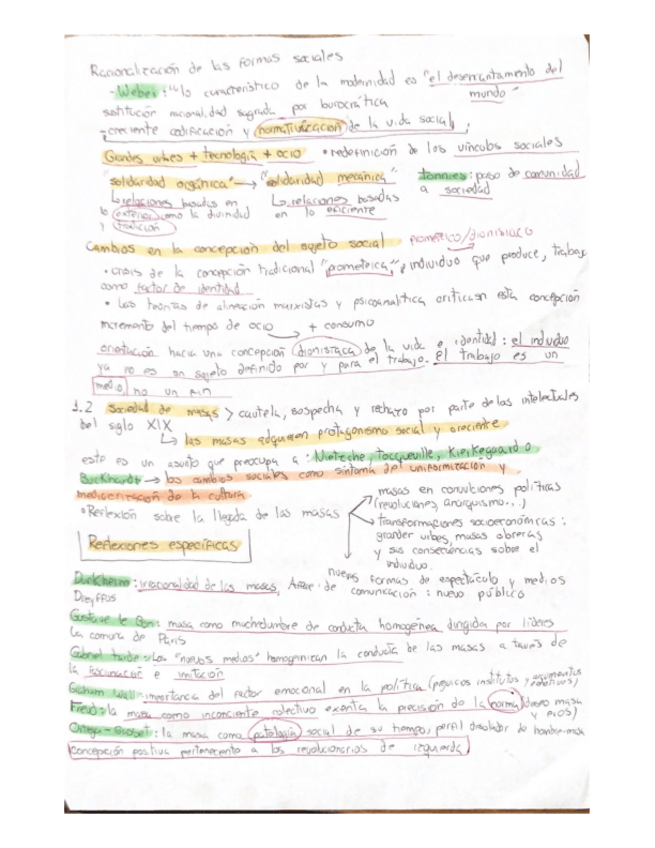 Racionalización de las formas sociales
- Weber: "lo característico de la modernidad es "el desencantamento del
mundo"
sustitución racionalidad sagrada por burocrática
- creciente codificación y normativización de la vida social,
Grandes urbes + tecnología + ocio • redefinición de los vínculos sociales
"solidaridad orgánica" → "solidaridad mecánica" Tönnies: paso de comunidad
a sociedad
relaciones basadas en
lo exterior como la divinidad
y tradición
relaciones basadas
en lo eficiente
Cambios en la concepción del sujeto social prometéico/dionisíaco
• crisis de la concepción tradicional "prometéica", individuo que produce, trabajo
como factor de identidad
• Las teorías de alineación marxistas y psicoanalítica critican esta concepción
incremento del tiempo de ocio → + consumo
orientación hacia una concepción dionisíaca de la vida e identidad: el individuo
ya no es un sujeto definido por y para el trabajo. el trabajo es un
medio no un fin
1.2 Sociedad de masas > cautela, sospecha y rechazo por parte de los intelectuales
del siglo XIX
↳ las masas adquieren protagonismo social y creciente
esto es un asunto que preocupa a: Nietzche, Tocqueville, Kierkegaard o
Buckhardt → los cambios sociales como síntoma del uniformización y
mediocrización de la cultura
• Reflexión sobre la llegada de las masas
masas en convulciones políticas
(revoluciones, anarquismo...)
transformaciones socioeconómicas:
grandes urbes, masas obreras
y sus consecuencias sobre el
individuo.
nuevas formas de espectáculo y medios
de comunicación: nuevo público
Reflexiones específicas
Durkheim: irracionalidad de las masas, Affaire
Dreyffus
Gustave le Bon: masa como muchedumbre de conducta homogénea dirigida por líderes
La comuna de París
Gabriel tarde: Los "nuevos medios" homogenizan la conducta de las masas a través de
la fascinación e imitación
Graham Wall: importancia del factor emocional en la política
Freud: la masa como inconciente colectivo exenta la precisión de la norma
y eros)
Ortega-Gasset: la masa como patología social de su tiempo, perfil de hombre-masa
concepción positiva perteneciente a los revolucionarios de izquierda